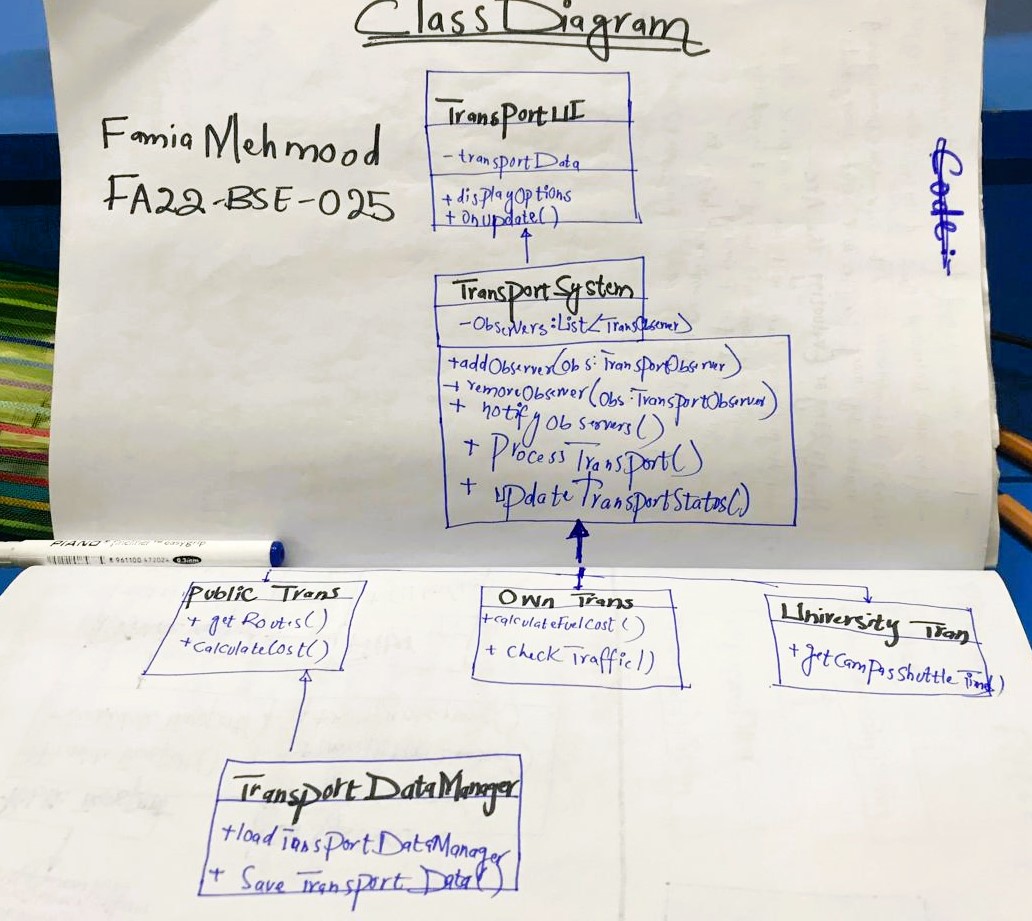 Class Diagram
Famia Mehmood
FA22-BSE-025
TransportUI
- transportData
+ displayOptions
+ onupdate()
Transport System
- Observers:List<TransObserver>
+addObserver(obs:TransportObserver)
+ removeObserver(obs:TransportObserver)
+ notifyObservers()
+ Process Transport()
+ update TransportStatos()
PIANO
8 961100 472024 0.3mm
Public Trans
+ getRoutes()
+CalculateCost()
Own Trans
+calculateFuelCost()
+ check Traffic()
University Tran
+getCampasShuttle Time()
Transport DataManager
+load TransPort DataManager
+ Save Transport Data()